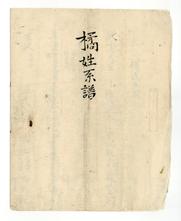 橘姓系譜